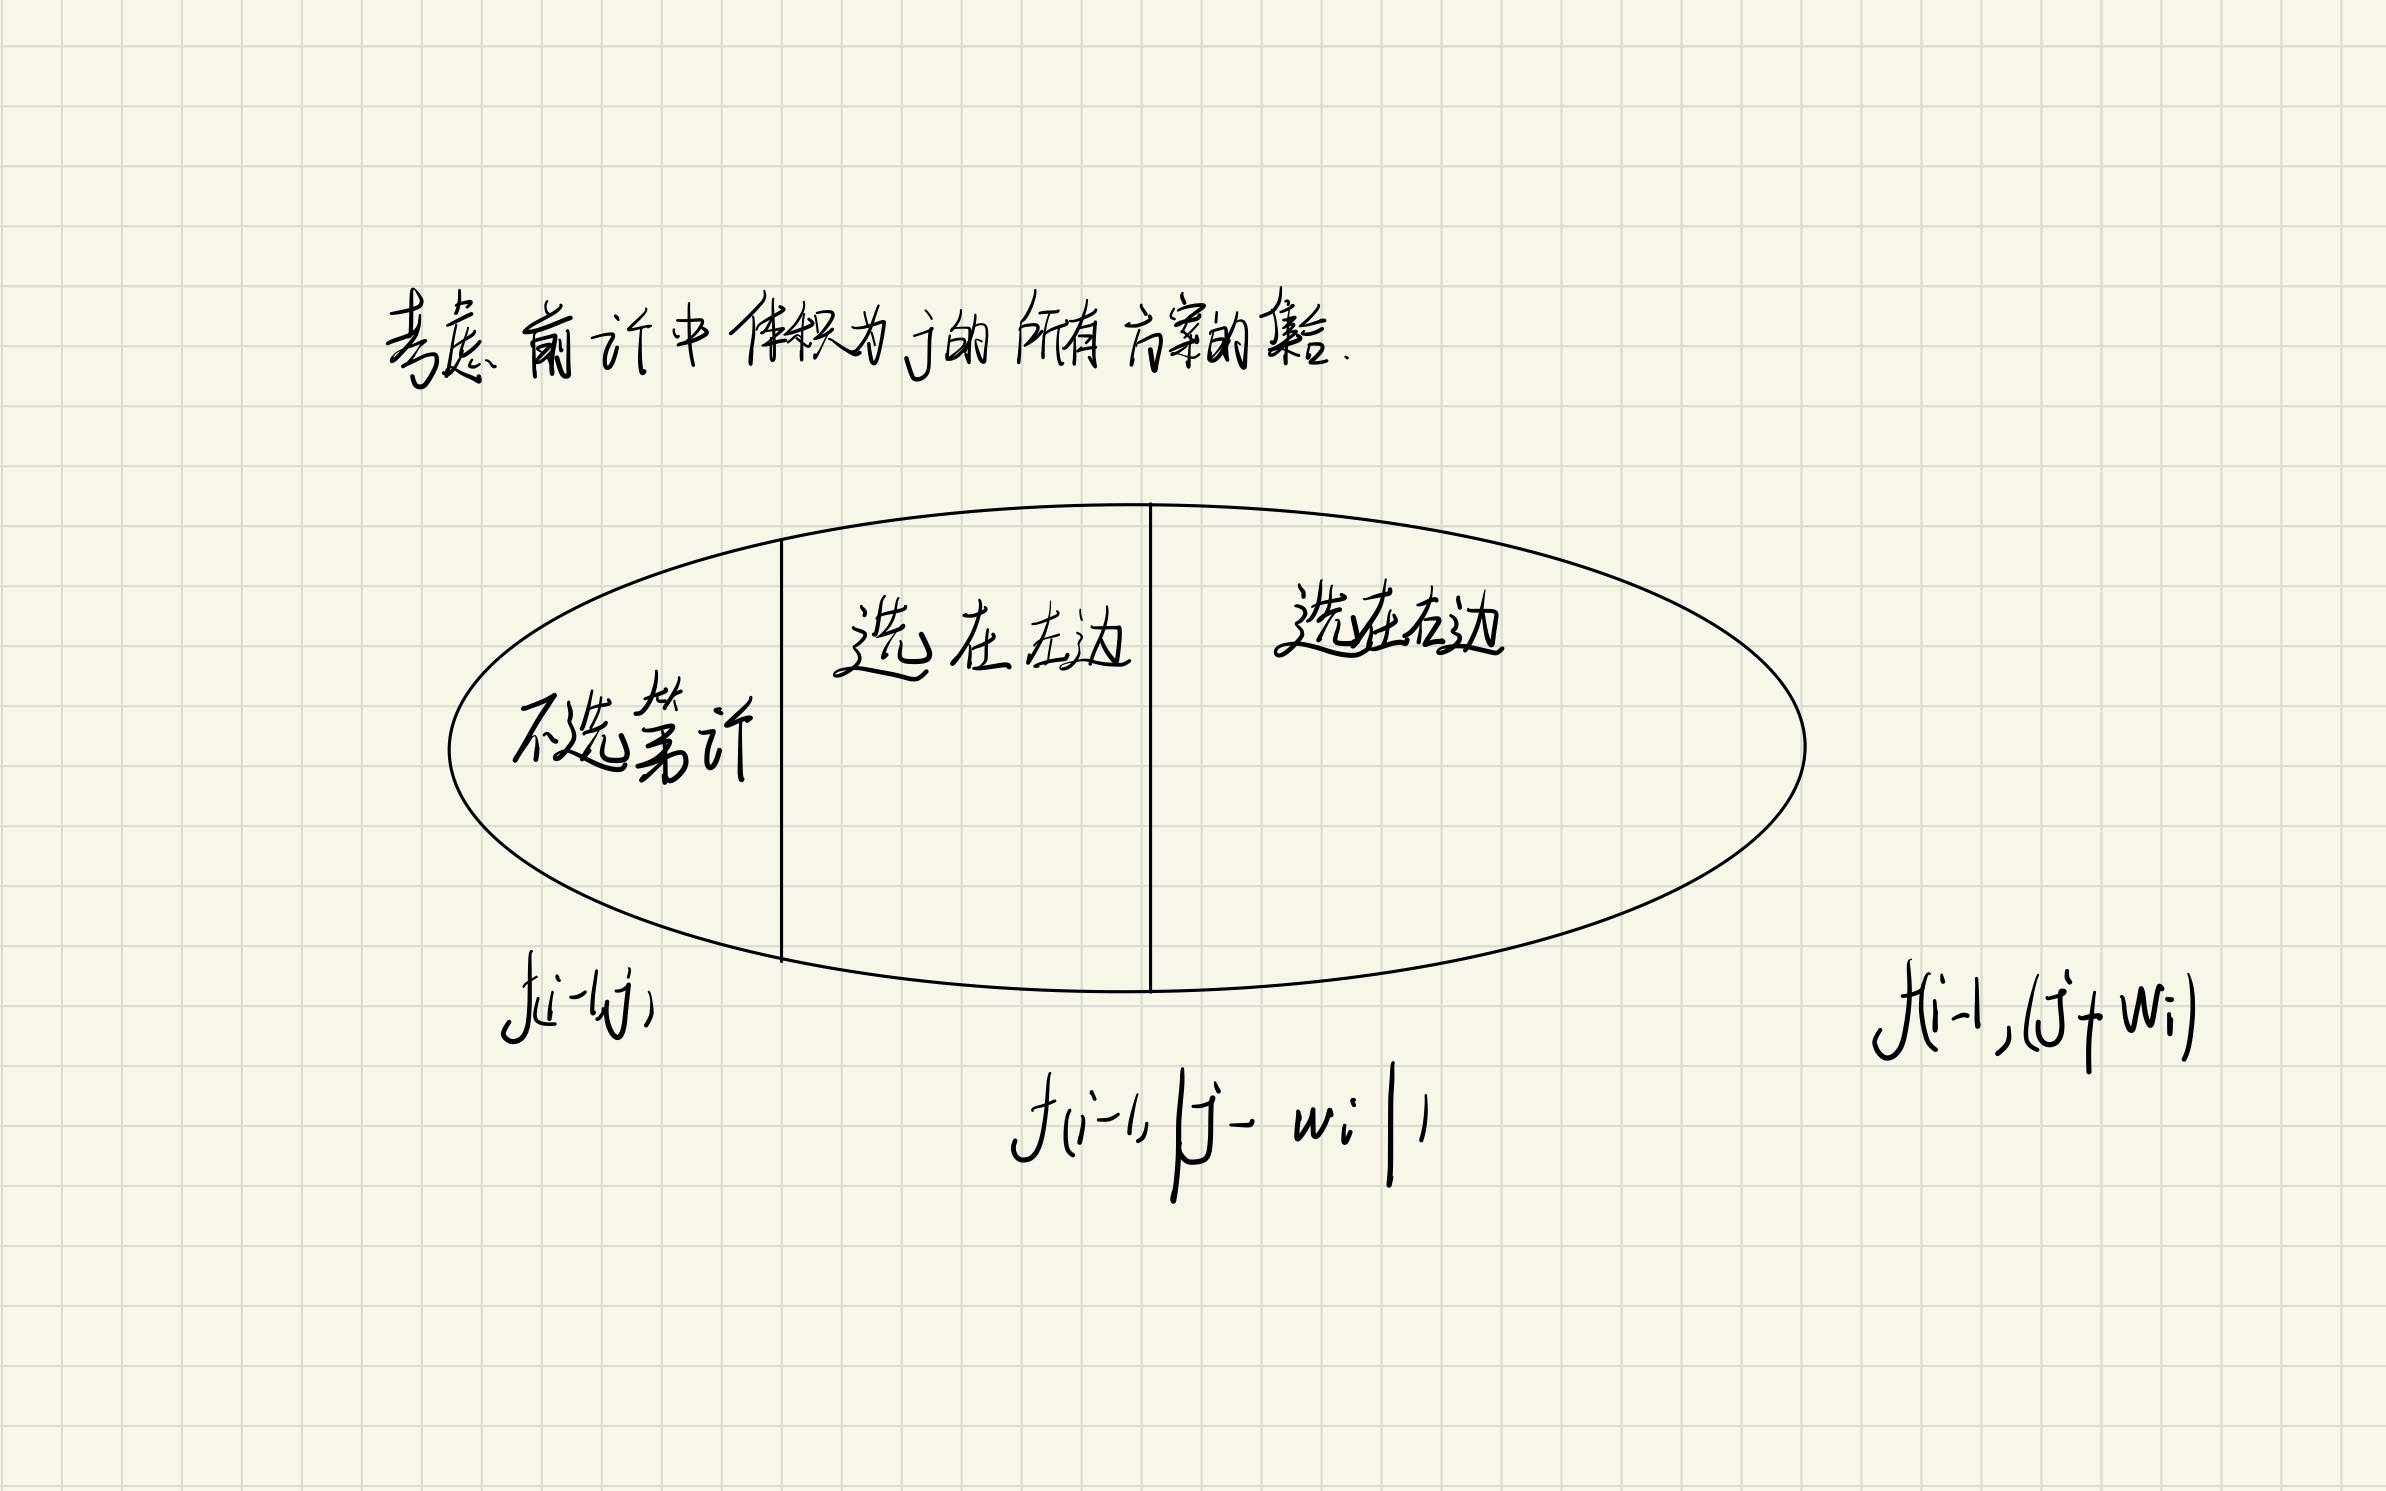 考虑前i个中体积为j的所有方案的集合.
不选第i个
选在左边
选在右边
f(i-1,j)
f(i-1,|j-wi|)
f(i-1,(j+wi)